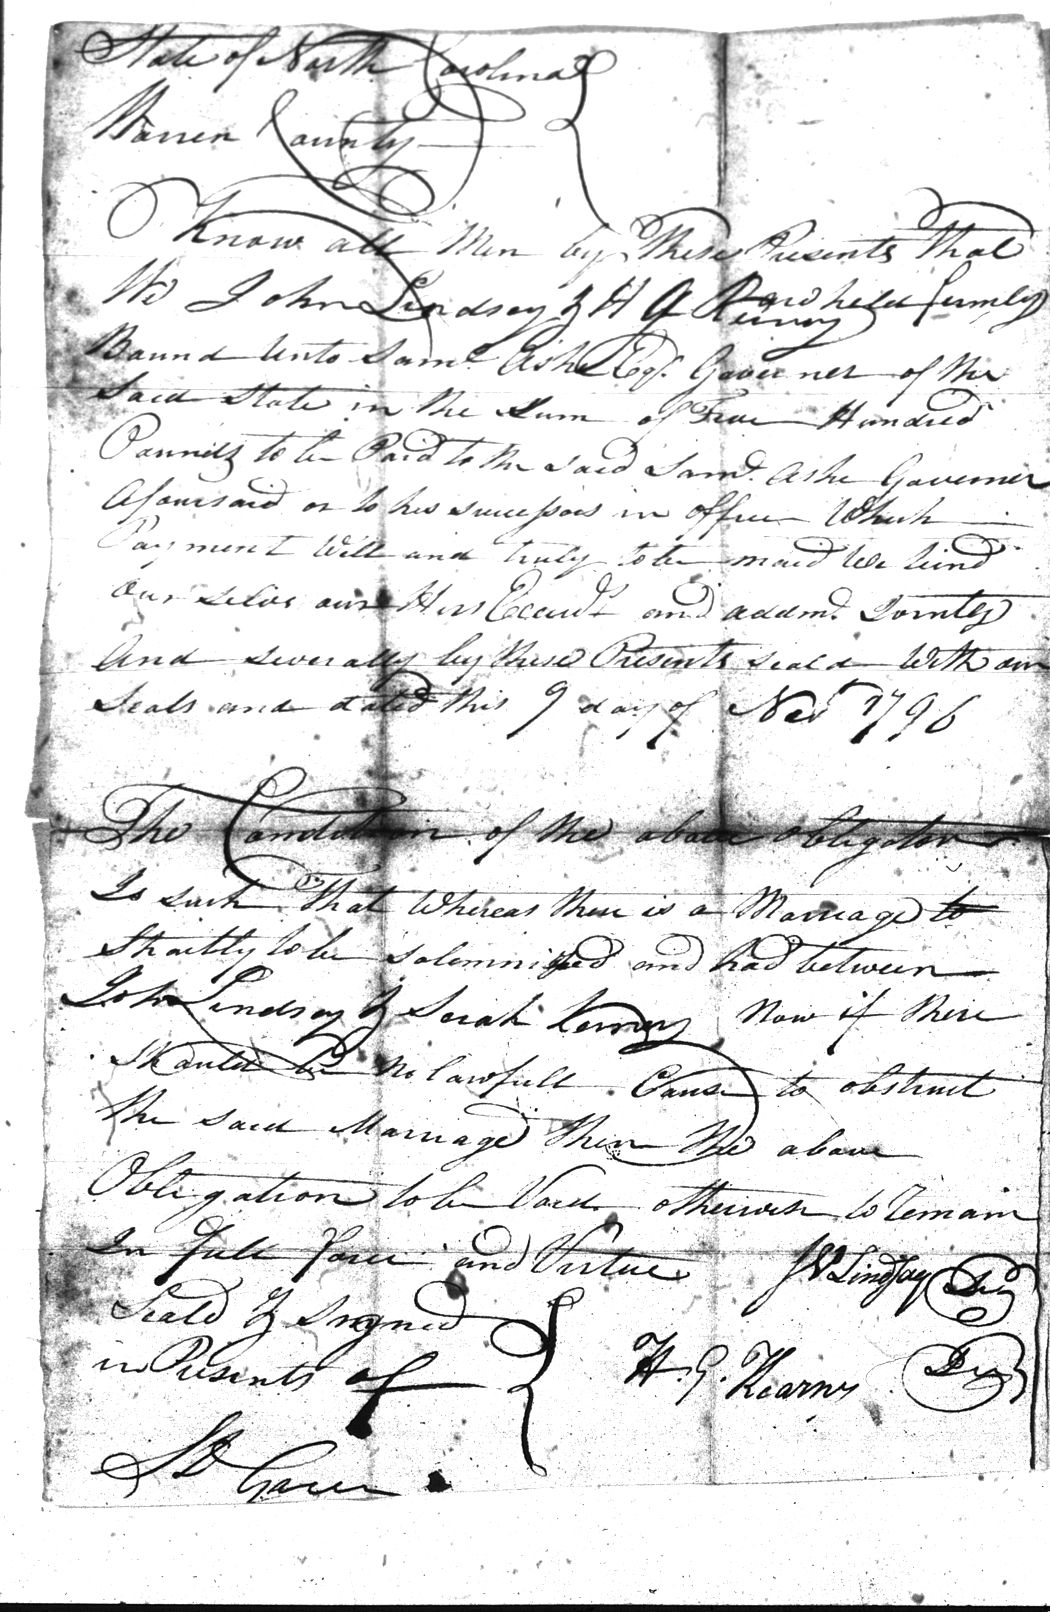 State of North Carolina
Warren County
Know all Men by These Presents That
We John Lindsey & H G are held firmly
Bound unto Saml. Ashe Esqr. Governer of the
Said State in the Sum of Five Hundred
Pounds to be Paid to the said Saml. Ashe Governer
Aforesaid or to his successors in office Which
Payment Will and truly to be maid We bind
Our selves our Hirs and addmd. Jointly
And severally by these Presents seald With our
Seals and dated this 9 day of 1796
The Condition of the above obligation
Is such That Whereas there is a Marriage
Shortly to be solemnized and had between
John Lindsey & Sarah now if there
Should be no lawfull Cause to obstruct
the said Marriage then The above
Obligation to be Void otherwise to Remain
In full force and Virtue J Lindsay
Seald & Signed
in Presents of H. G. Kearny